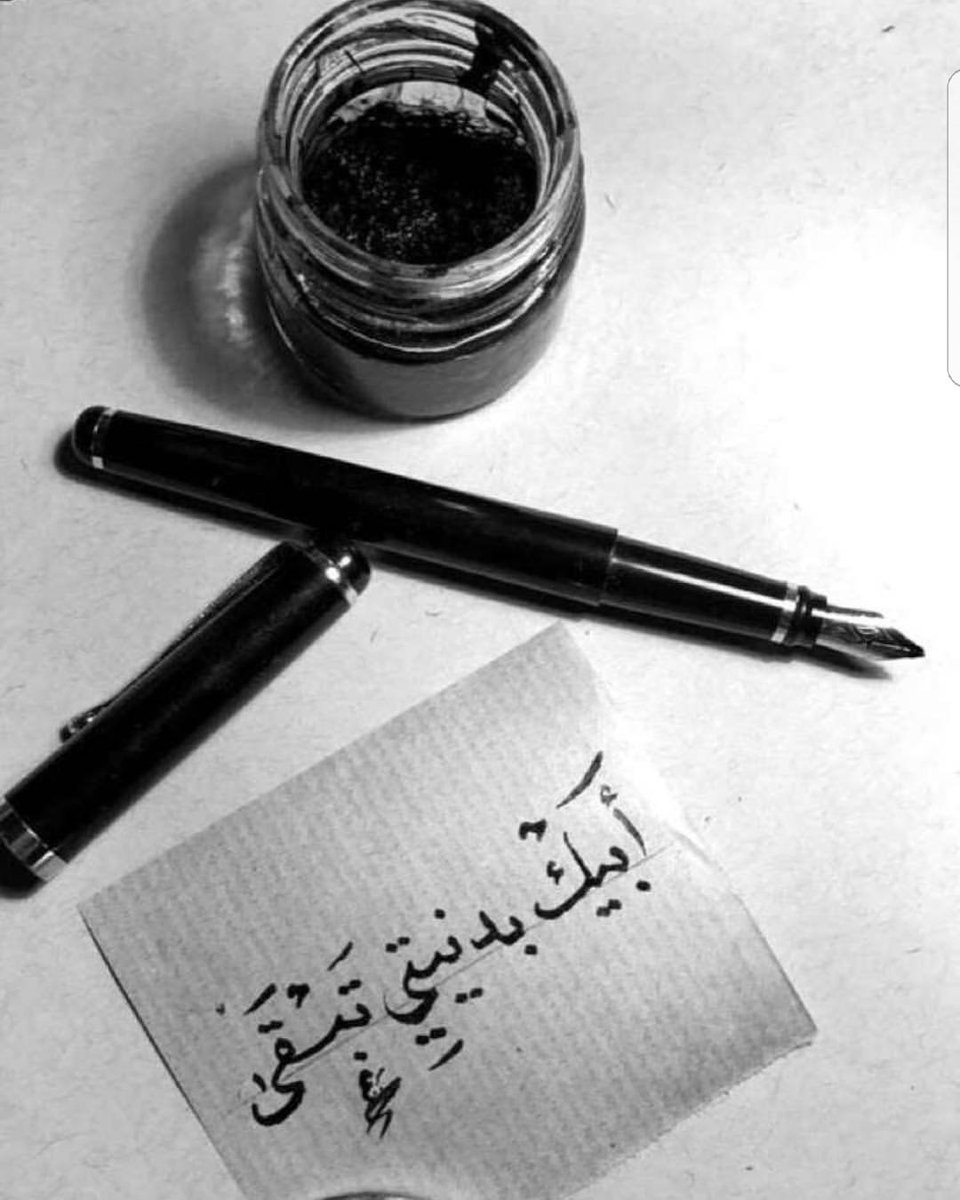 أَبيكْ بدنيتيِ تَبْقَىٰ